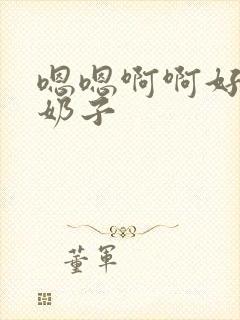 嗯嗯啊啊好
奶子
董軍